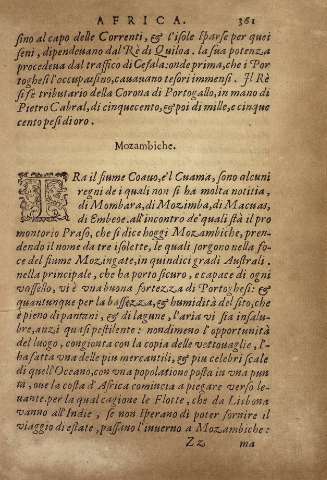 AFRICA. 361
sino al capo delle Correnti, & l'isole sparse per quei
seni, dipendeuano dal Rè di Quiloa. la sua potenza
procedeua dal traffico di Cefala: onde prima, che i Por
toghesi l'occupassino, cauauano tesori immensi. Il Rè
si fè tributario della Corona di Portogallo, in mano di
Pietro Cabral, di cinquecento, & poi di mille, e cinque
cento pesi di oro.
Mozambiche.
TRa il fiume Coauo, e'l Cuama, sono alcuni
regni de i quali non si ha molta notitia,
di Mombara, di Mozimba, di Macuas,
di Embeoe. all'incontro de' quali stà il pro
montorio Praso, che si dice hoggi Mozambiche, pren-
dendo il nome da tre isolette, le quali sorgono nella fo-
ce del fiume Mozingate, in quindici gradi Australi.
nella principale, che ha porto sicuro, e capace di ogni
vossello, vi è vna buona fortezza di Portoghesi: &
quantunque per la bassezza, & humidità del sito, che
è pieno di pantani, & di lagune, l'aria vi sia insalu-
bre, anzi quasi pestilente: nondimeno l'opportunità
del luogo, congionta con la copia delle vettouaglie, l'-
ha fatta vna delle piu mercantili, & piu celebri scale
di quell'Oceano, con vna popolatione posta in vna pun
ta, oue la costa d'Africa comincia a piegare verso le-
uante. per la qual cagione le Flotte, che da Lisbona
vanno all'Indie, se non sperano di poter fornire il
viaggio di estate, passano l'inuerno a Mozambiche:
Zz ma